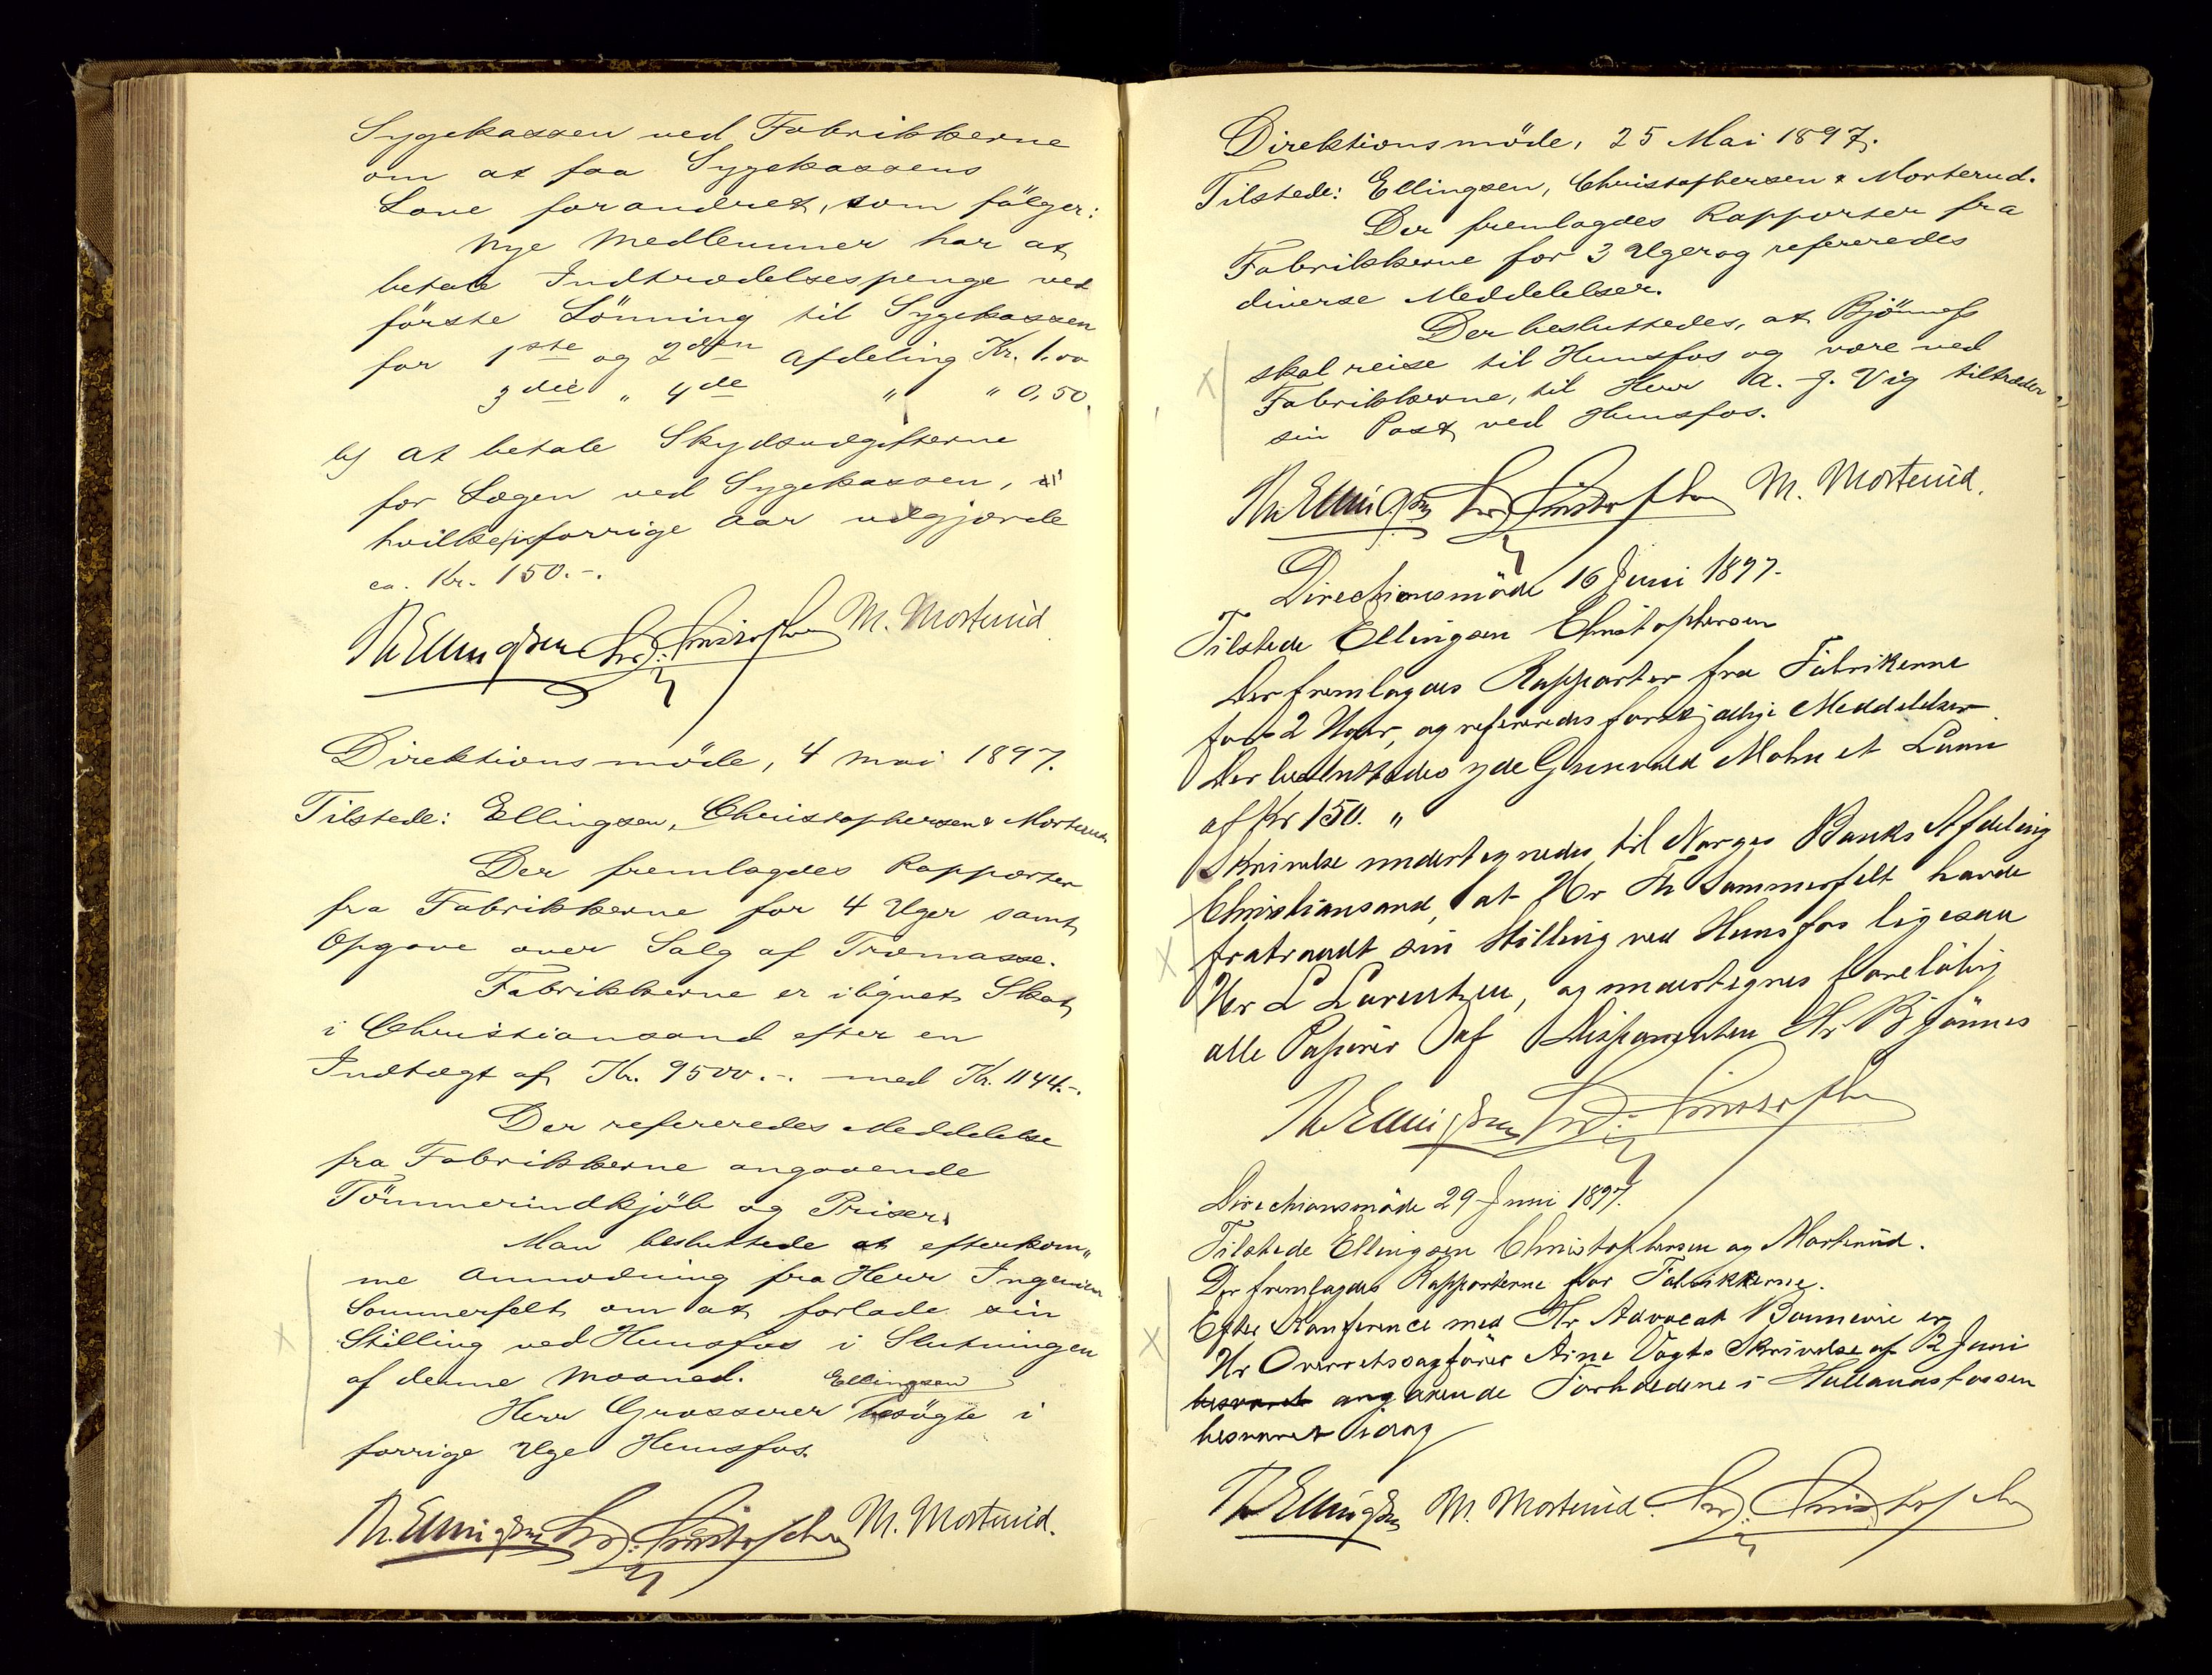 Sygekassen ved Fabrikkerne
om at faa Sygekassens
Love forandret, som fölger:
Nye Medlemmer har at
betale Indtrædelsespenge ved
förste Lönning til Sygekassen
for 1ste og 2den Afdeling Kr. 1.00
3die " 4de " " 0,50.
b) at betale Skydsudgifterne
for Lægen ved Sygekassen,
hvilke i forrige Aar udgjorde
ca. Kr. 150.-.
Th. Ellingsen Chr. Christophersen M. Morterud
Direktionsmöde, 4 Mai 1897.
Tilstede: Ellingsen, Christophersen & Morterud
Der fremlagdes Rapporter
fra Fabrikkerne for 4 Uger samt
Opgave over Salg af Træmasse.
Fabrikkerne er ilignet Skat
i Christiansand efter en
Indtægt af Kr. 9500.-. med Kr. 1144.-.
Der refereredes Meddelelse
fra Fabrikkerne angaaende
Tömmerindkjöb og Priser.
Man besluttede at efterkom„
me Anmodning fra Herr Ingeniør
Sommerfelt om at forlade sin
Stilling ved Hunsfos i Slutningen
af denne Maaned. Ellingsen
Herr Grosserer besögte i
forrige Uge Hunsfos.
Th. Ellingsen Chr. Christophersen M. Morterud.
Direktionsmöde, 25 Mai 1897.
Tilstede: Ellingsen, Christophersen & Morterud.
Der fremlagdes Rapporter fra
Fabrikkerne for 3 Uger og refereredes
diverse Meddelelser.
Der besluttedes, at Björnnes
skal reise til Hunsfos og være ved
Fabrikkerne, til Herr A. J. Vig tiltræder
sin Post ved Hunsfos.
Th. Ellingsen Chr. Christophersen M. Morterud.
Directionsmöde 16 Juni 1897.
Tilstede Ellingsen Christophersen
Der fremlagdes Rapporter fra Fabrikerne
for 2 Uger, og refereredes forskjellige Meddelelser
Der besluttedes yde Grunvald Mohn et Laan
af Kr 150. "
Skrivelse undertegnedes til Norges Banks Afdeling
Christiansand, at Hr Th Sommerfelt havde
fratraadt sin Stilling ved Hunsfos ligesaa
Hr L Lorentzen, og undertegnes forelöbig
alle Papirer af Disponenten Hr Björnnes
Th. Ellingsen Chr. Christophersen
Directionsmöde 29 Juni 1897.
Tilstede Ellingsen Christophersen og Morterud.
Der fremlagdes Rapporterne for Fabrikkerne.
Efter Konference med Hr Advocat Bonnevie er
Hr Overretssagförer Arne Vogts Skrivelse af 12 Juni
besvaret angaaende Forholdene i Hullandsfossen
besvaret idag
Th Ellingsen M. Morterud. Chr. Christophersen